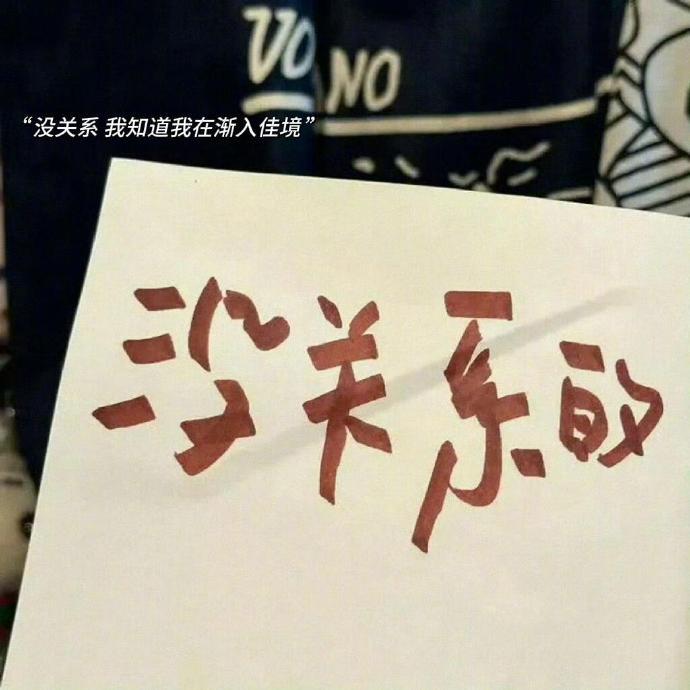 VO
NO
“没关系 我知道我在渐入佳境”
没关系的